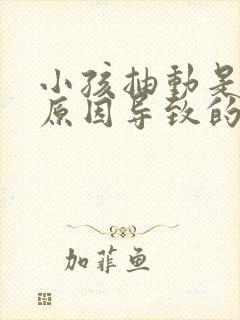 小孩抽動是
原因导致的
加菲鱼